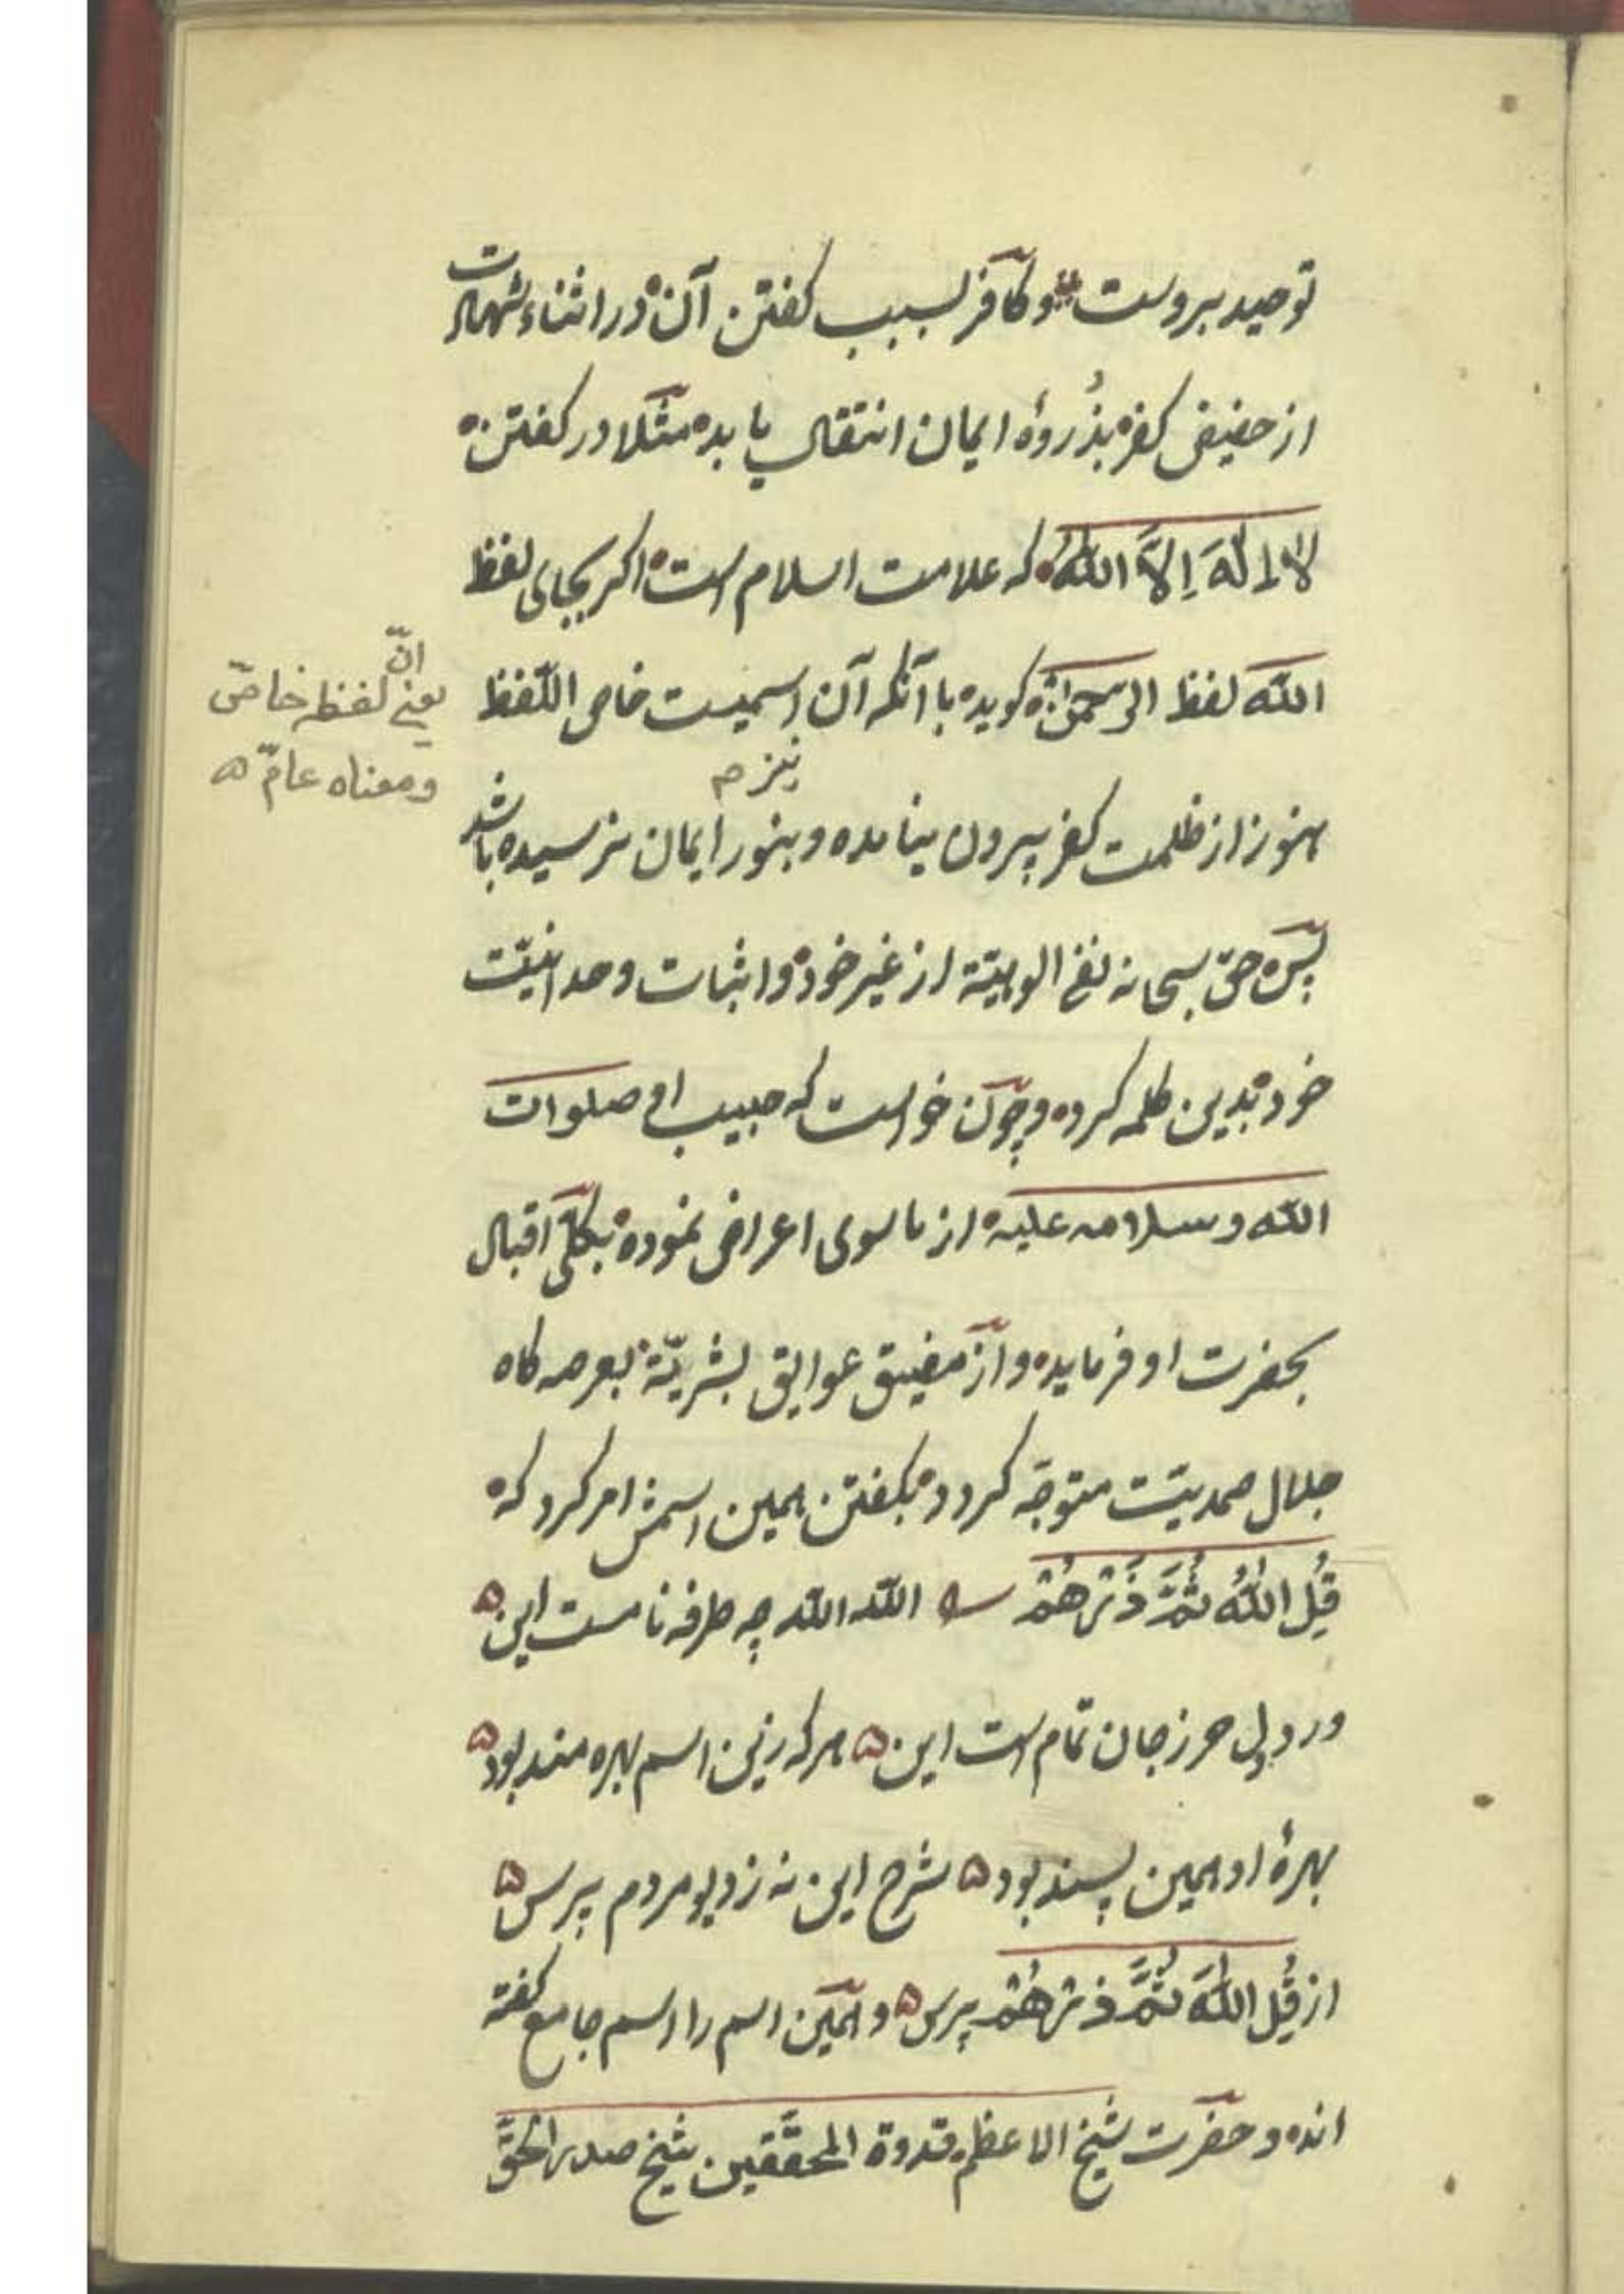 توحید بروست وکافر بسبب کفتن آن در اثناء شهادت
از حضیض کفر بذُروهٔ ایمان انتقال یابد مثلا در کفتن
لا اِلٰهَ اِلاَّ اللّٰهُ که علامت اسلام است اکر بجای لفظ
اللّه لفظ الرحمن کوید با آنکه آن اسمیست خاص اللّفظ
یعنی انّ لفظه خاصّ
ومعناه عامّ
نیز م
هنوز از ظلمت کفر بیرون نیامده و بنور ایمان نرسیده باشد
پس حق سبحانه نفی الوهیّة از غیر خود و اثبات وحدانیّت
خود بدین کلمه کرده وچون خواست که حبیب او صلوات
اللّه وسلامه علیه از ماسوی اعراض نموده بکلّی اقبال
بحضرت او فرماید و از مضیق عوایق بشریّة بعرصه کاه
جلال صمدیّت متوجّه کردد بکفتن همین اسمش امر کرد که
قُلِ اللّٰهُ ثُمَّ ذَرْهُمْ اللّه اللّه چه طرفه نامست این
ورد دل حرز جان تمام است این هرکه زین اسم بهره مند بود
بهرهٔ او همین پسند بود شرح این نه زدیو مردم پرس
از قُلِ اللّٰهَ ثُمَّ ذرهُمْ پرس و همین اسم را اسم جامع کفته
اند و حضرت شیخ الاعظم قدوة المحقّقین شیخ صدر الحقّ